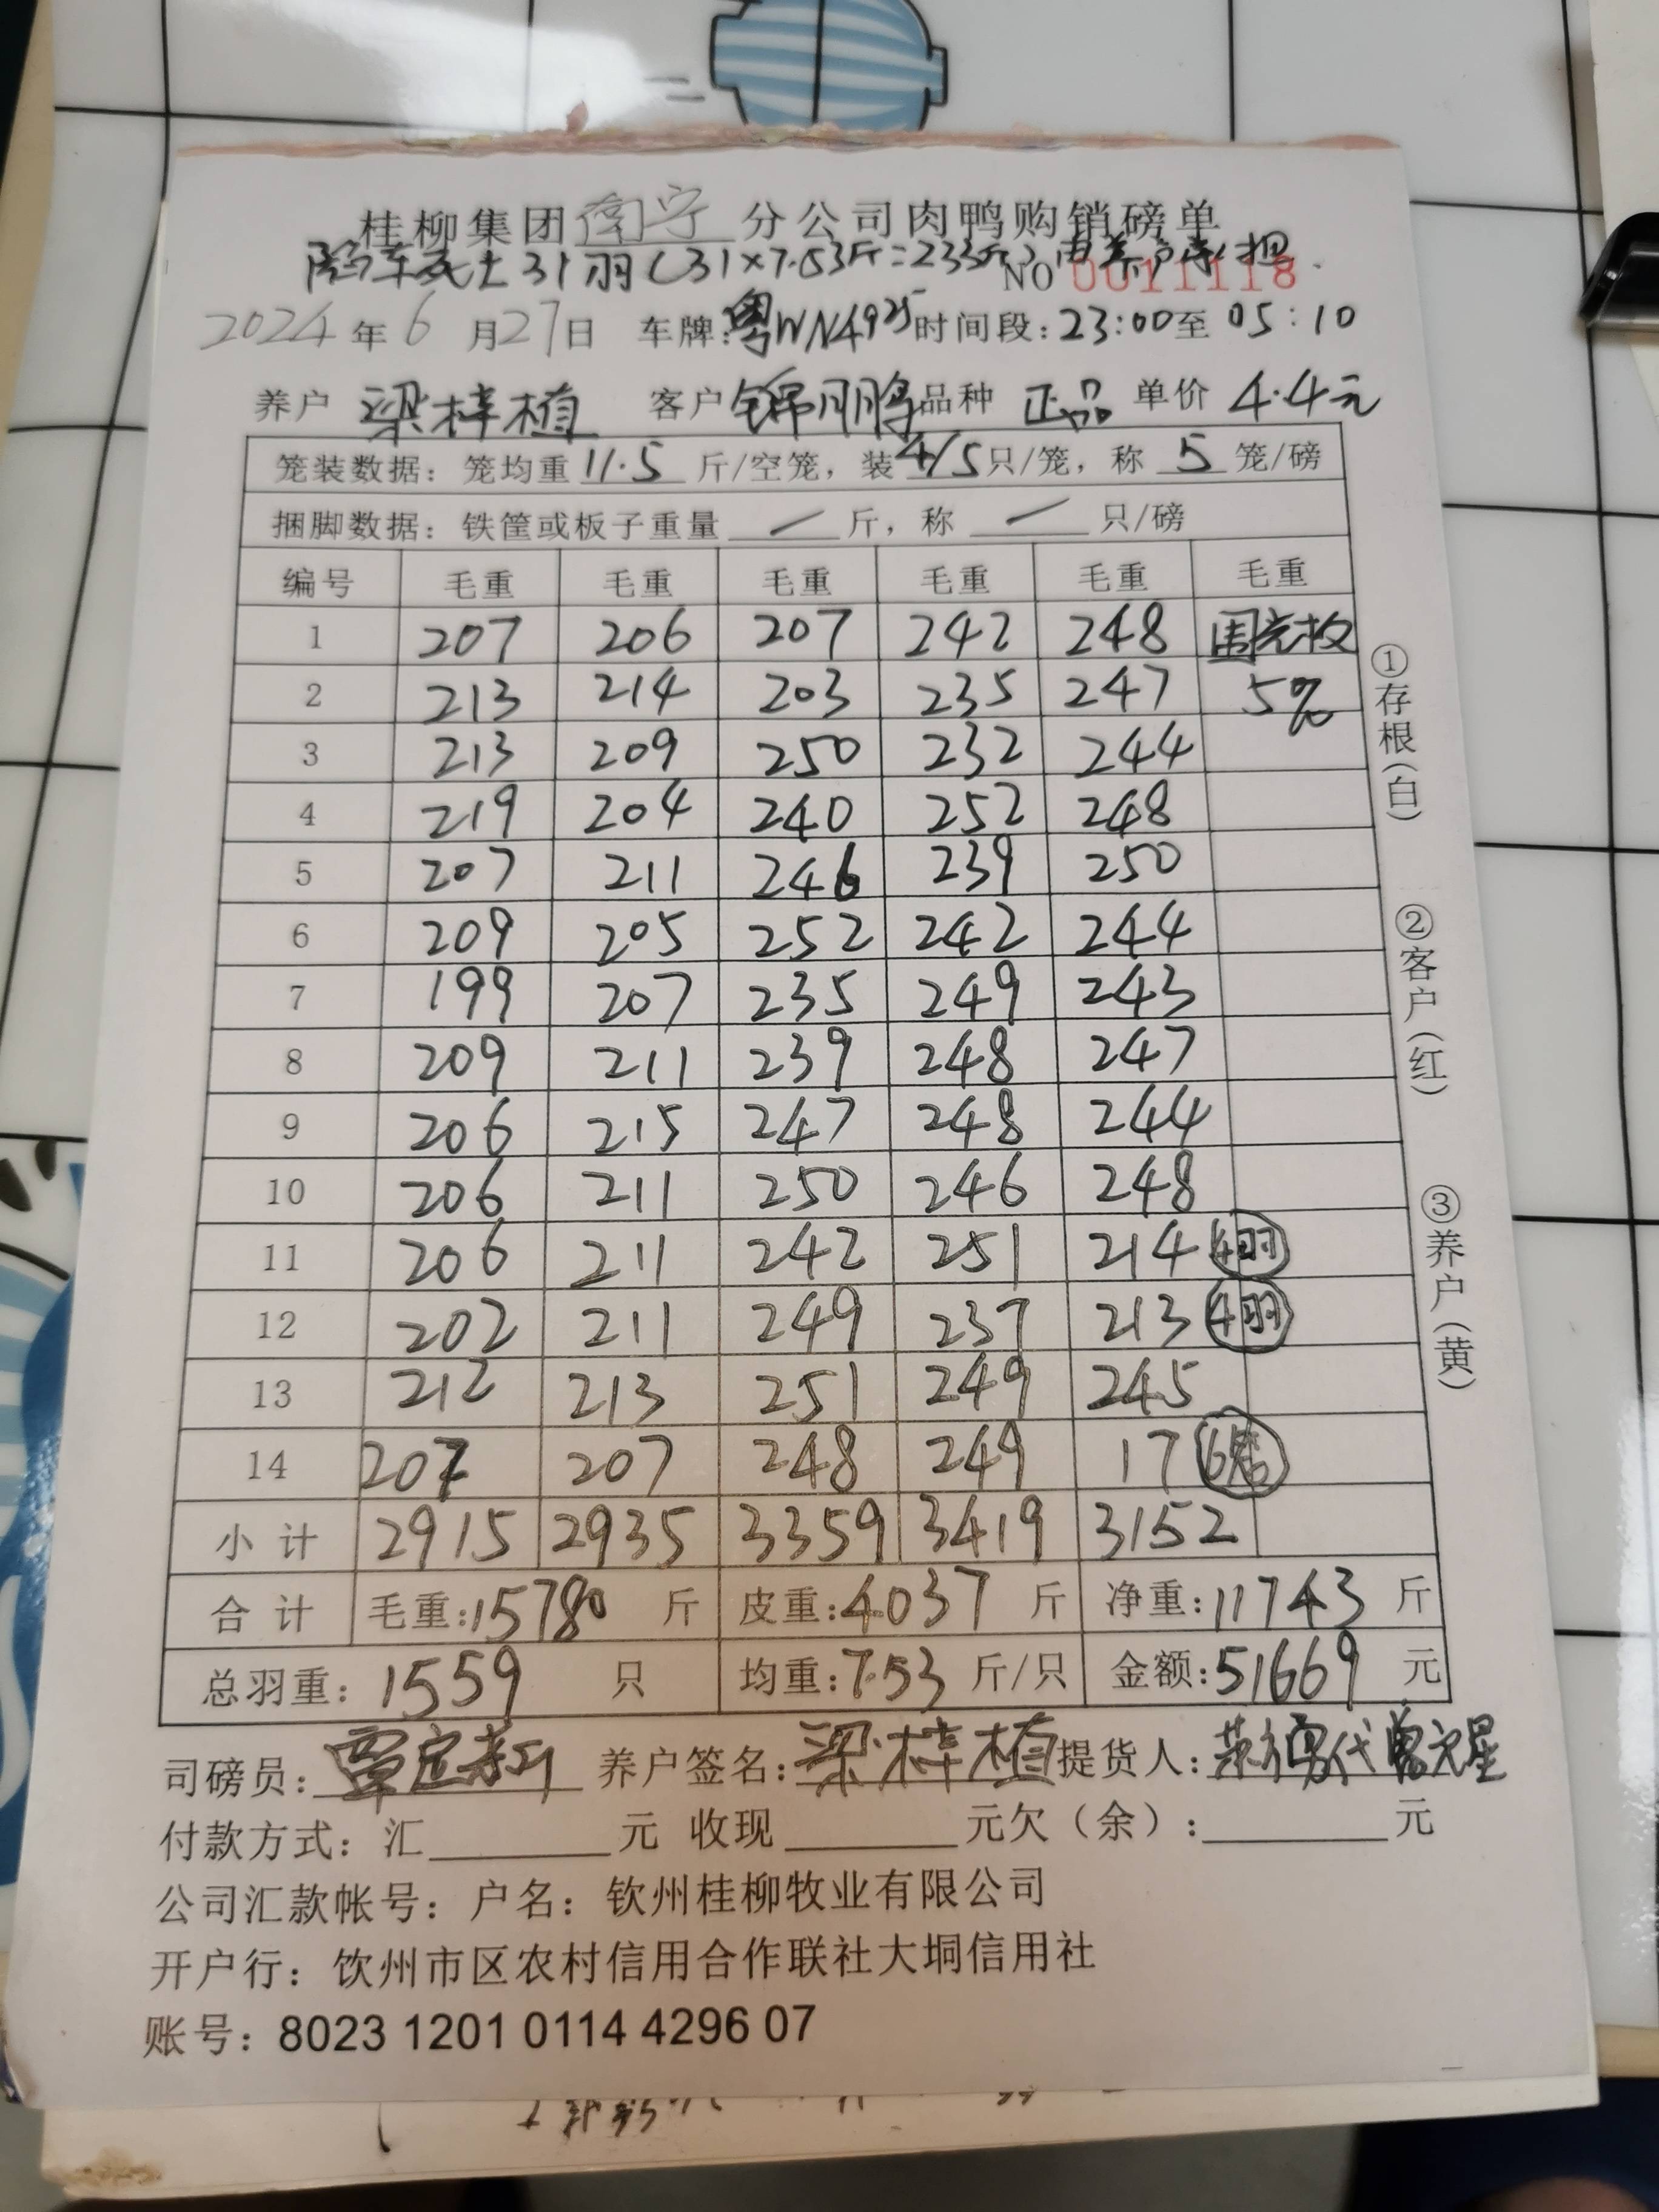 桂柳集团南宁分公司肉鸭购销磅单
随车死土31羽(31×7.53斤=233斤)由养户承担
NO 0011118
2024年6月27日 车牌:粤WN4925 时间段:23:00至05:10
养户 梁梓植 客户 锦鹏 品种 正品 单价 4.4元
笼装数据:笼均重 11.5 斤/空笼,装4/5只/笼,称 5 笼/磅
捆脚数据:铁筐或板子重量 / 斤,称 / 只/磅
编号 毛重 毛重 毛重 毛重 毛重 毛重
1 207 206 207 242 248
2 213 214 203 235 247 5%
3 213 209 250 232 244
4 219 204 240 252 248
5 207 211 246 239 250
6 209 205 252 242 244
7 199 207 235 249 243
8 209 211 239 248 247
9 206 215 247 248 244
10 206 211 250 246 248
11 206 211 242 251 214 4羽
12 202 211 249 237 213 4羽
13 212 213 251 249 245
14 207 207 248 249 17
小计 2915 2935 3359 3419 3152
合计 毛重:15780 斤 皮重:4037 斤 净重:11743 斤
总羽重:1559 只 均重:7.53 斤/只 金额:51669 元
司磅员:覃定新 养户签名:梁梓植 提货人:
付款方式:汇 元 收现 元欠(余): 元
公司汇款帐号:户名:钦州桂柳牧业有限公司
开户行:钦州市区农村信用合作联社大垌信用社
账号:8023 1201 0114 4296 07
①存根(白)
②客户(红)
③养户(黄)